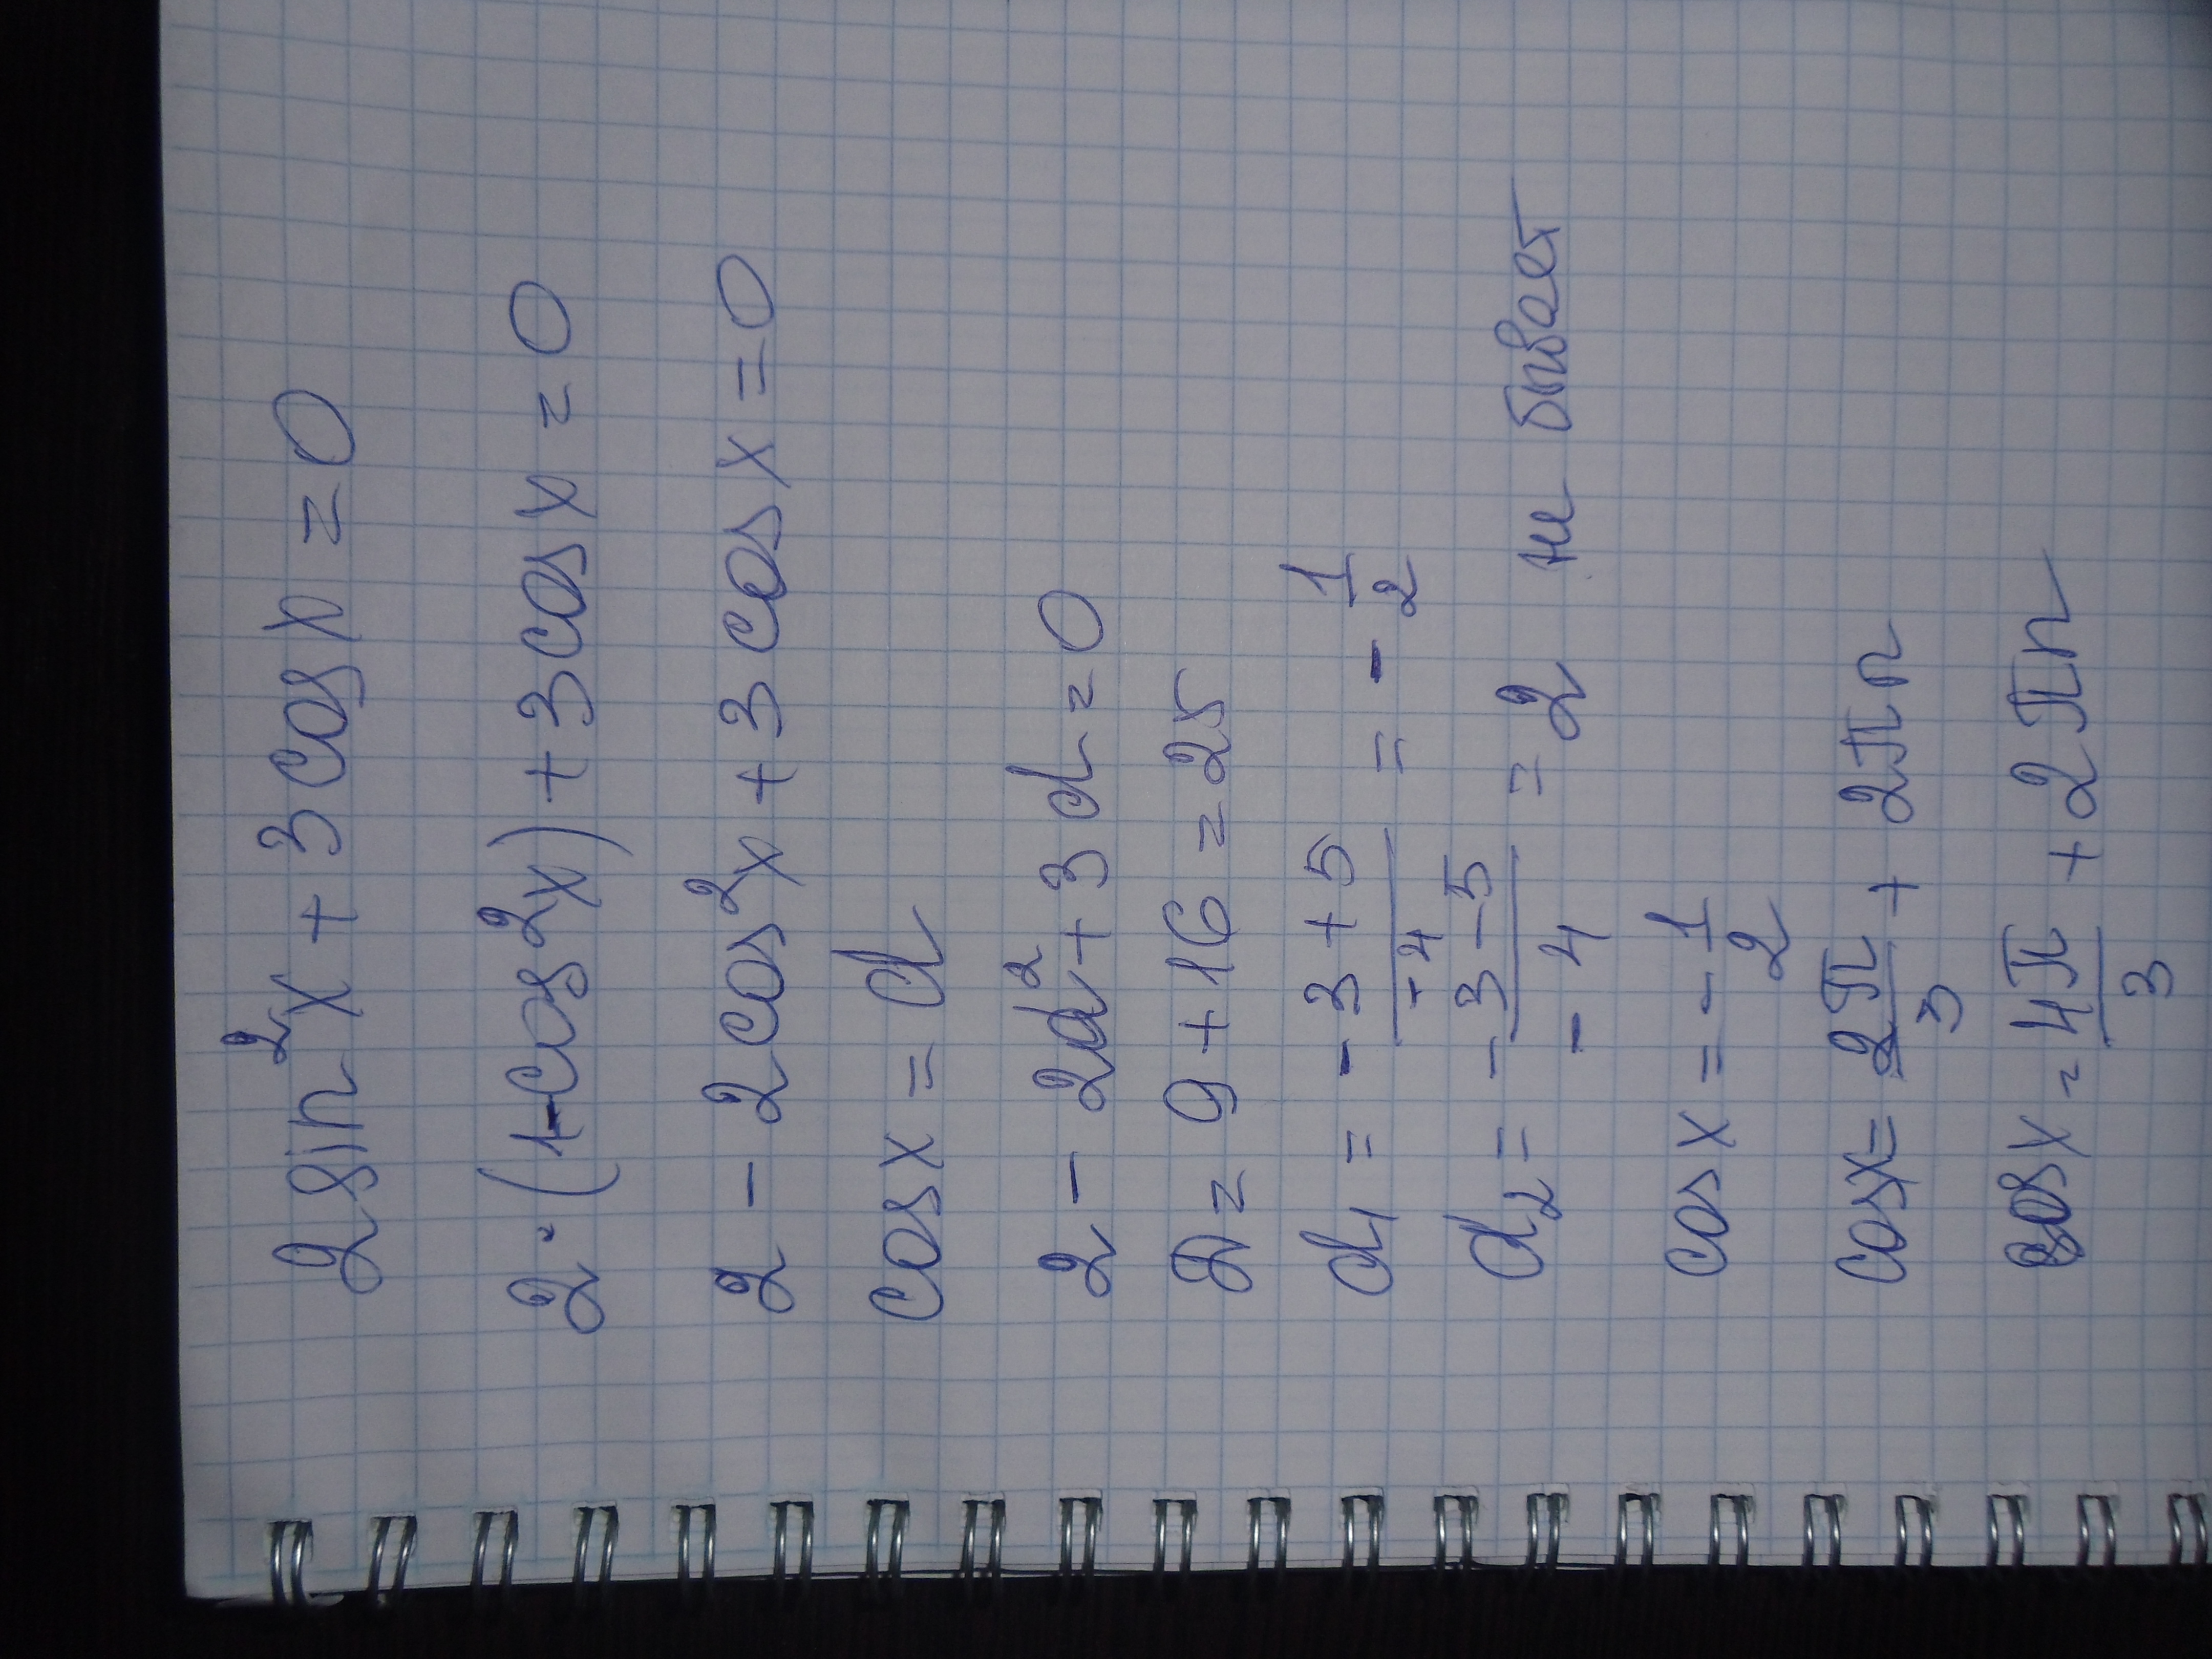 2sin²x + 3cosx = 0
2·(1-cos²x) + 3cosx = 0
2 - 2cos²x + 3cosx = 0
cosx = d
2 - 2d² + 3d = 0
D = 9 + 16 = 25
d₁ = (-3+5)/(-4) = -1/2
d₂ = (-3-5)/(-4) = 2 не бывает
cosx = -1/2
cosx = 2π/3 + 2πn
cosx = 4π/3 + 2πn